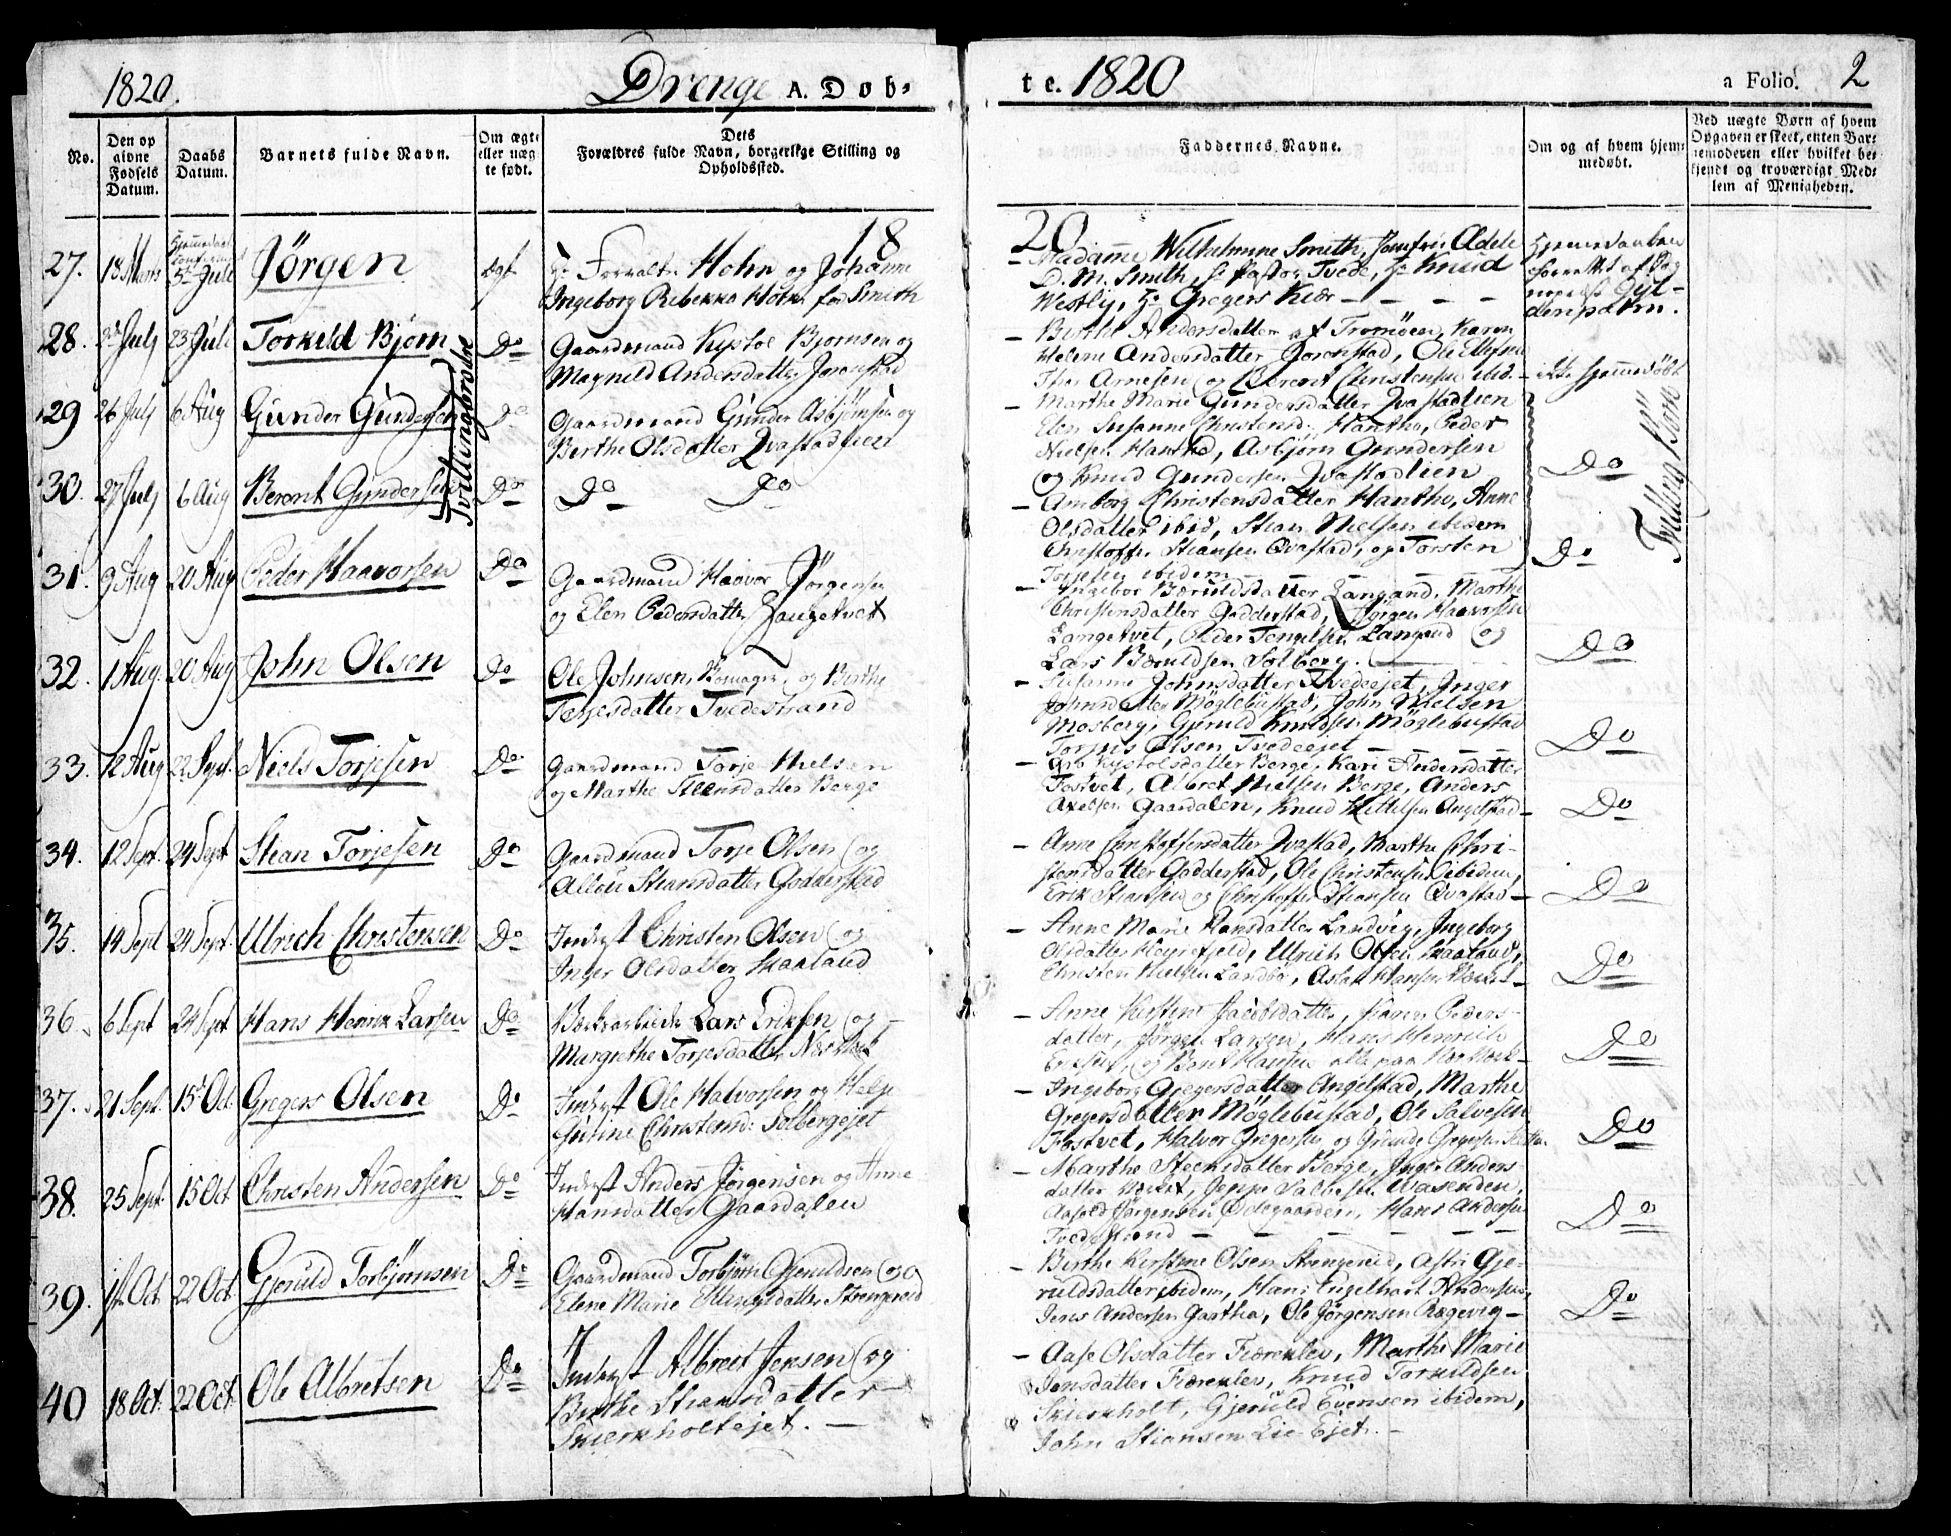 1820. Drenge A. Døb-
No.
Den op
givne
Fødsels
Datum.
Daabs
Datum.
Barnets fulde Navn.
Om ægte
eller uæg
te født.
Dets
Forældres fulde Navn, borgerlige Stilling og
Opholdssted.
18
27. 18 Marts 5te Juli Jörgen
Hr Forvalter Holm og Johanne
Ingeborg Rebekka Holm før Smith
28. Juli 23 Juli Torkild Bjørn Do
Gaardmand Kystol Bjørnsen og
Magnild Andersdatter Jorenstad
29 26 Juli 6 Aug Gunder Gundersen Do
Tvillingbrødre
Gaardmand Gunder Asbjørnsen og
Berthe Olsdatter Qvastadlien
30. 27 Juli 6 Aug Berent Gundersen Do
Do Do
31. 9 Aug 20 Aug Peder Haavorsen Do
Gaardmand Haavor Jörgensen
og Elen Pedersdatter Langetvet
32. 1 Aug. 20 Aug John Olsen Do
Ole Johnsen og Birthe
Terjesdatter Tvedestrand
33. 12 Aug 22 Sept. Niels Torjesen Do
Gaardmand Torje Nielsen
og Marthe Steensdatter Berge
34. 12 Sept. 24 Sept Stian Torjesen Do
Gaardmand Torje Olsen og
Stiansdatter Godderstad
35. 14 Sept 24 Sept. Ulrich Christensen Do
Inderst Christen Olsen og
Inger Olsdatter Skaaland
36 6 Sept 24 Sept. Hans Henrik Larsen Do
Lars Eriksen og
Margrethe Torjesdatter
37. 21 Sept. 15 Oct. Gregers Olsen Do
Inderst Ole Halvorsen og Helje
Christensd: Solbergejet
38. 25 Sept. 15 Oct Christen Andersen Do
Inderst Anders Jørgensen og Anne
Hansdatter Gaardalen
39. 1st Oct 22 Oct Gjeruld Torbjørnsen Do
Gaardmand Torbjørn Gjeruldsen og
Elene Marie Strengereid
40 18 Oct. 22 Oct. Ole Albretsen Do
Inderst Albrect Jensen og
Birthe Stiansdatter
Skierkholtejet. —
te. 1820 a Folio. 2
Faddernes Navne.
Om og af hvem hjem-
medøbt.
Ved uægte Børn af hvem
Opgaven er skeet, enten Bar-
nemoderen eller hvilket be-
kjendt og troværdigt Med-
lem af Menigheden.
20
— Madame Wilhelmine Smith, Jomfru Adele
D. M. Smith, Hr Pastor Tvede, Hr Knud
Westly, Hr Gregers Kiær — — — —
Hjemmedaaben
forrettet af

— Birthe Andersdatter af Tromöen, Karen
Helene Andersdatter Jorenstad, Ole
Thor Arnesen og Berent Christensen ibid. —
ikke hjemmedöbt
Tvilling Börn
— Marthe Marie Gundersdatter Qvastadlien
Elen Susanne Christensd: Hantho, Peder
Nielsen Hantho, Asbjørn Gundersen
og Knud Gundersen Qvastadlien
Do
— Amborg Christensdatter Hantho, Anne
Olsdatter ibid, Stian Nielsen ibidem
Christoffer Stiansen Qvastad, og Torsten
Torjesen ibidem — — — —
Do
— Ingebor Bæruldsdatter Langand, Marthe
Christensdatter Gadderstad, Jörgen Haavorsen
Langetvet, Peder Tengelsen Langand og
Lars Bæruldsen Solberg. —
Do
— Susanne Johnsdatter Tvedeejet, Inger
Johnsdatter Möglebustad, John Nielsen
Mosberg, Gjeruld Knudsen Möglebustad
Torjus Olsen Tvedeejet — — — —
Do
— Kystolsdatter Berge, Kari Andersdatter
Fostvet, Albret Nielsen Berge, Anders
Axelsen Gaardalen, Knud Kittelsen Angelstad —
Do
— Anne Christoffersdatter Qvastad, Marthe Chri-
stensdatter Gadderstad, Ole Christensen ibidem,
Erik Stiansen og Christoffer Stiansen Qvastad —
Do
— Anne Marie Hansdatter Landvig, Ingeborg
Olsdatter Ulrich Olsen Skaaland,
Christen Nielsen Aslak Hansen
Do
— Anne Kirstine Jacobsdatter, Karen Peders-
datter, Jørgen Larsen, Hans Henrich
Eriksen, og Bent Hansen alle paa
Do
— Ingeborg Gregersdatter Angelstad, Marthe
Gregersdatter Möglebustad, Ole Salvesen
Fostvet, Halvor Gregersen og Gunde Gregersen
Do
— Marthe Steensdatter Berge, Inger Anders-
datter Jeppe Salvesen
Jørgensen Ødegaarden, Hans Andersen
Tvedestrand — — — — — —
Do
— Birthe Kirstine Olsen Strengereid, Astri Gje-
ruldsdatter ibidem, Hans Engelhart Andersen,
Jens Andersen Gartha, Ole Jørgensen
Do
— Aase Olsdatter Fiærekiev, Marthe Marie
Jensdatter Fiærekiev, Knud Torkildsen
Skierkholt, Gjeruld Evensen ibidem,
John Stiansen Lie Ejet. —